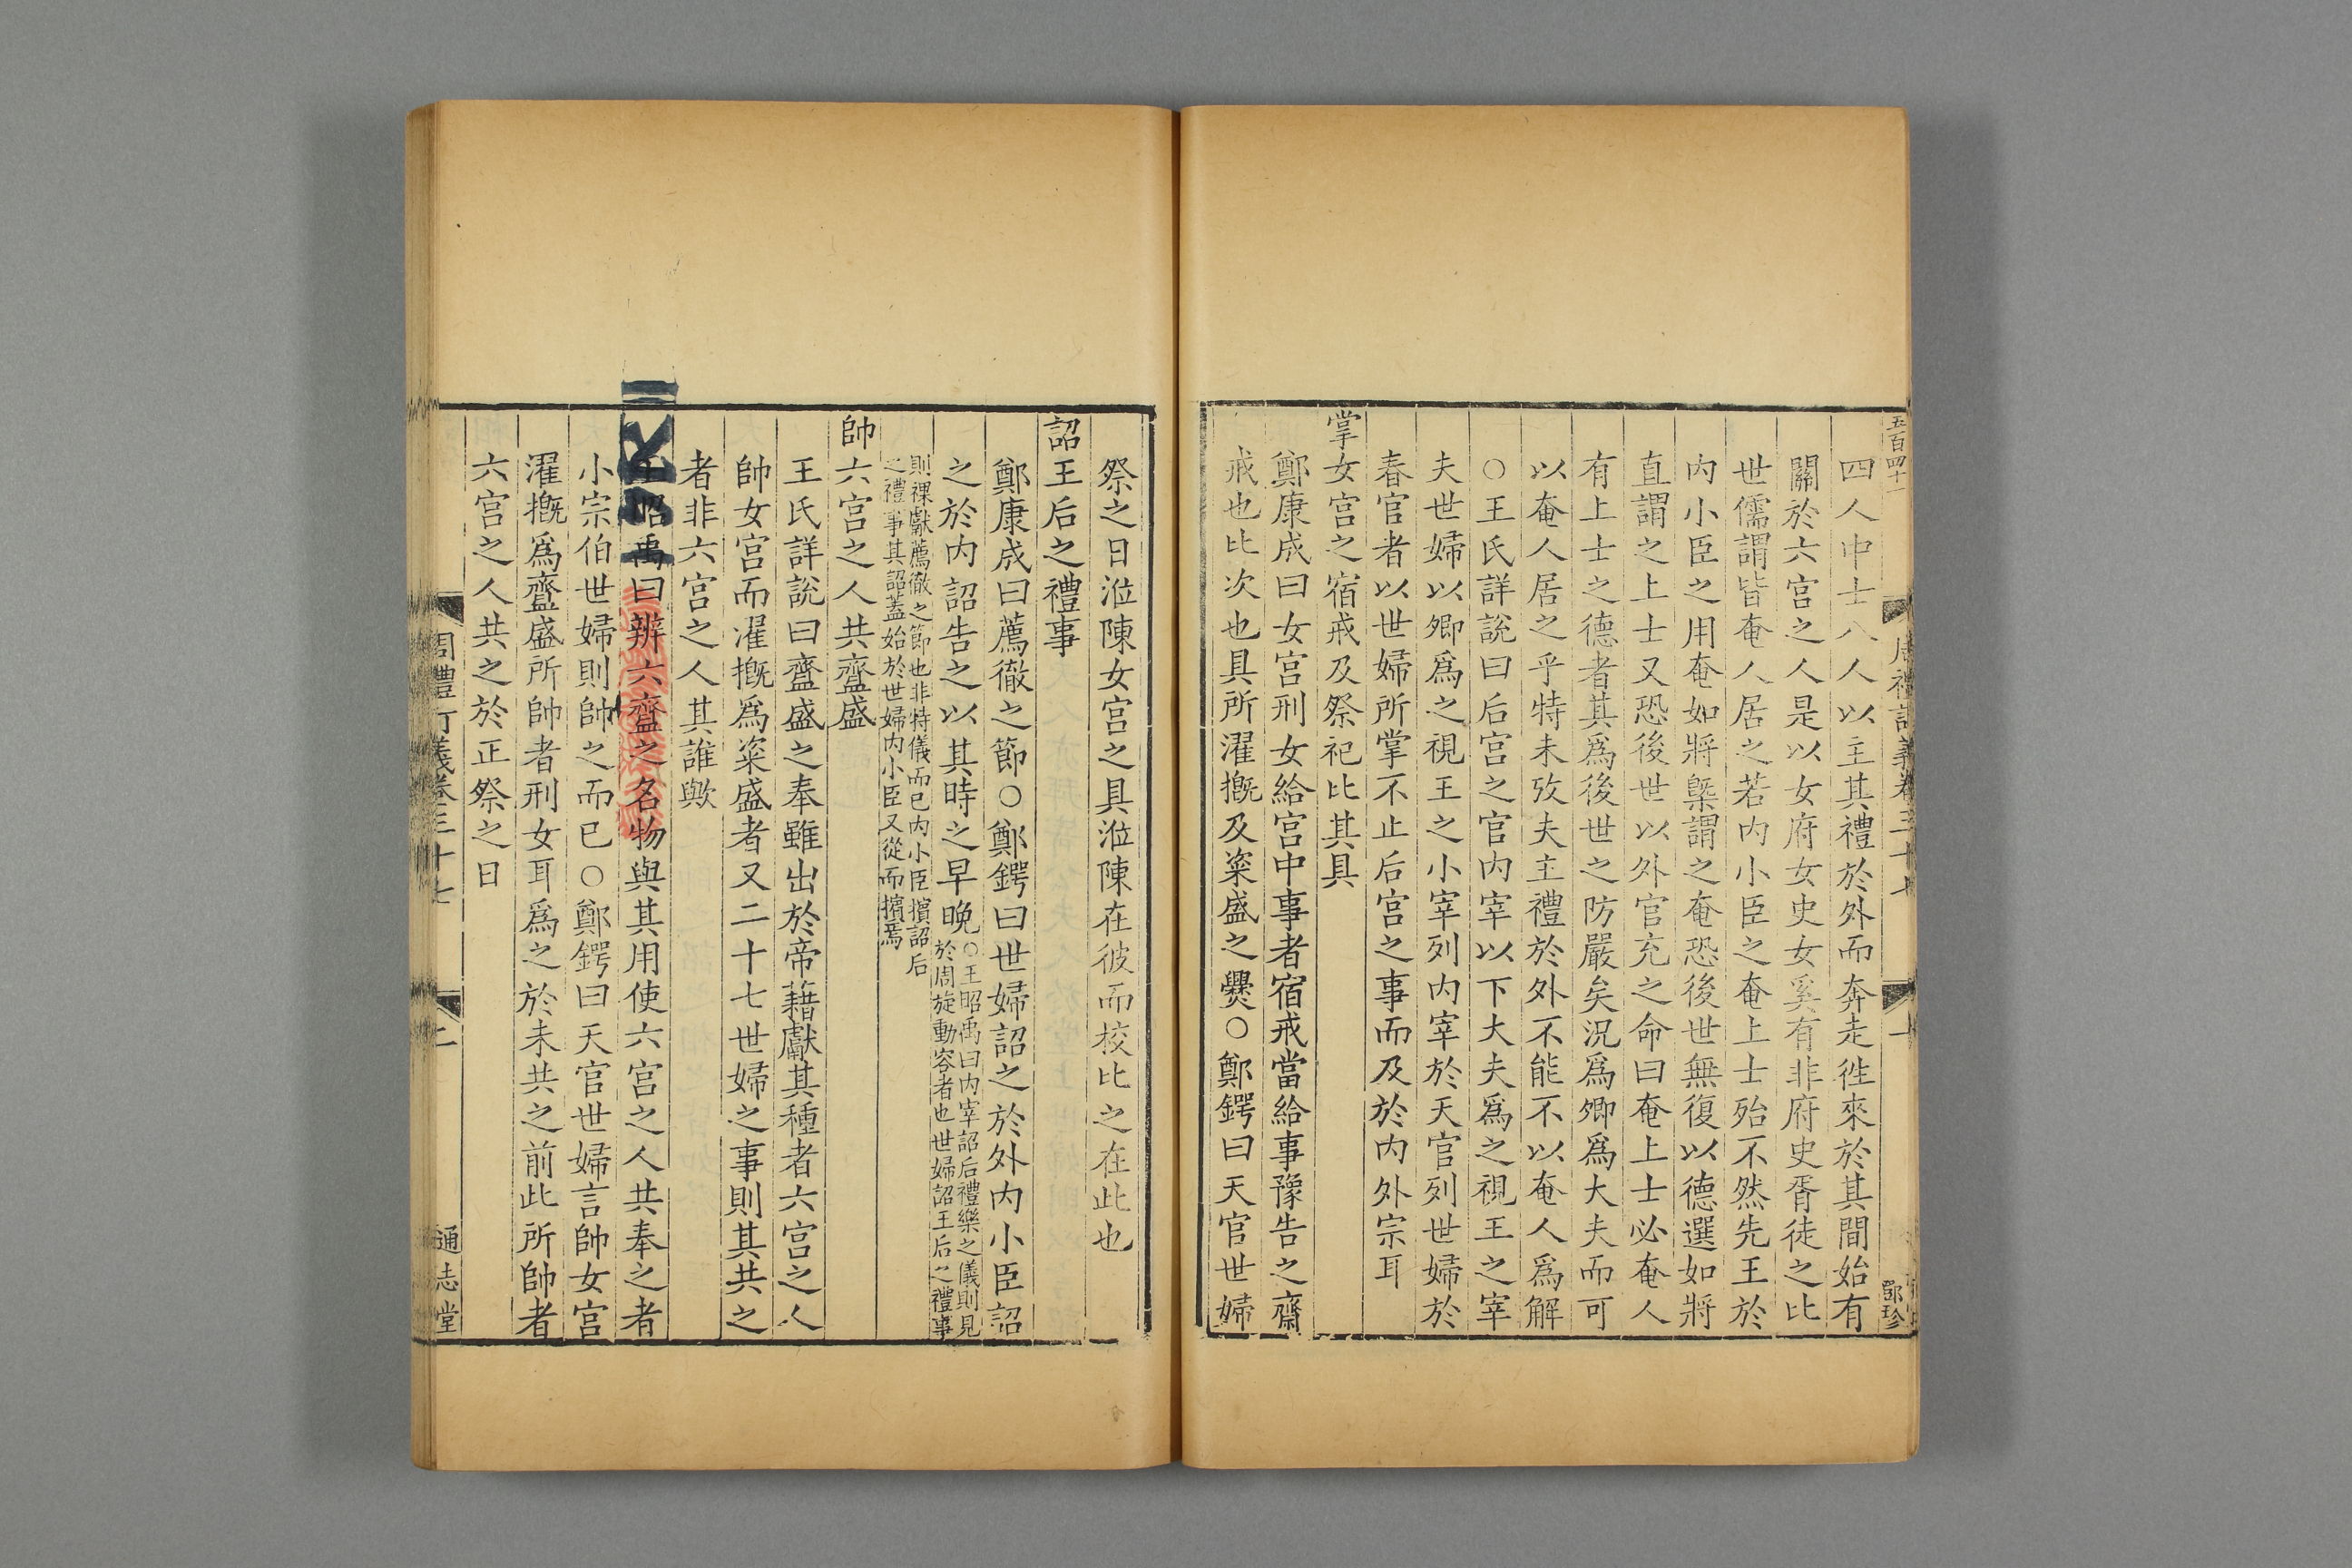 五百四十一
四人中士八人以主其禮於外而奔走徃來於其間始有
關於六宫之人是以女府女史女奚有非府史胥徒之比
世儒謂皆奄人居之若内小臣之奄上士殆不然先王於
内小臣之用奄如將槩謂之奄恐後世無復以德選如將
直謂之上士又恐後世以外官充之命曰奄上士必奄人
有上士之德者其爲後世之防嚴矣況爲卿爲大夫而可
以奄人居之乎特未攷夫主禮於外不能不以奄人爲解
○王氏詳說曰后宫之官内宰以下大夫爲之視王之宰
夫世婦以卿爲之視王之小宰列内宰於天官列世婦於
春官者以世婦所掌不止后宫之事而及於内外宗耳
掌女宫之宿戒及祭祀比其具
鄭康成曰女宫刑女給宫中事者宿戒當給事豫告之齋
戒也比次也具所濯摡及粢盛之爨○鄭鍔曰天官世婦
祭之日涖陳女宫之具涖陳在彼而校比之在此也
詔王后之禮事
鄭康成曰薦徹之節○鄭鍔曰世婦詔之於外内小臣詔
之於内詔告之以其時之早晩○王昭禹曰内宰詔后禮樂之儀則見
於周旋動容者也世婦詔王后之禮事
則祼獻薦徹之節也非特儀而已内小臣擯詔后
之禮事其詔蓋始於世婦内小臣又從而擯焉
帥六宫之人共齍盛
王氏詳說曰齍盛之奉雖出於帝藉獻其種者六宫之人
帥女宫而濯摡爲粢盛者又二十七世婦之事則其共之
者非六宫之人其誰歟
王昭禹曰辨六齍之名物與其用使六宫之人共奉之者
小宗伯世婦則帥之而已○鄭鍔曰天官世婦言帥女宫
濯摡爲齍盛所帥者刑女耳爲之於未共之前此所帥者
六宫之人共之於正祭之日
周禮訂義卷三十七
二
通志堂